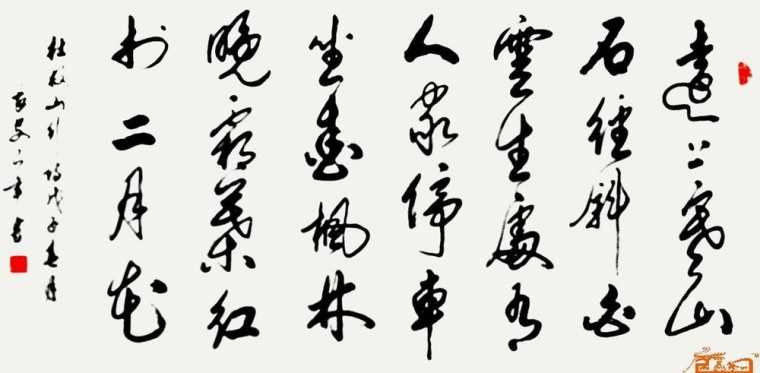 遠上寒山
石徑斜白
雲生處有
人家停車
坐愛楓林
晚霜葉紅
於二月花
杜牧山行詩戊子春月
書